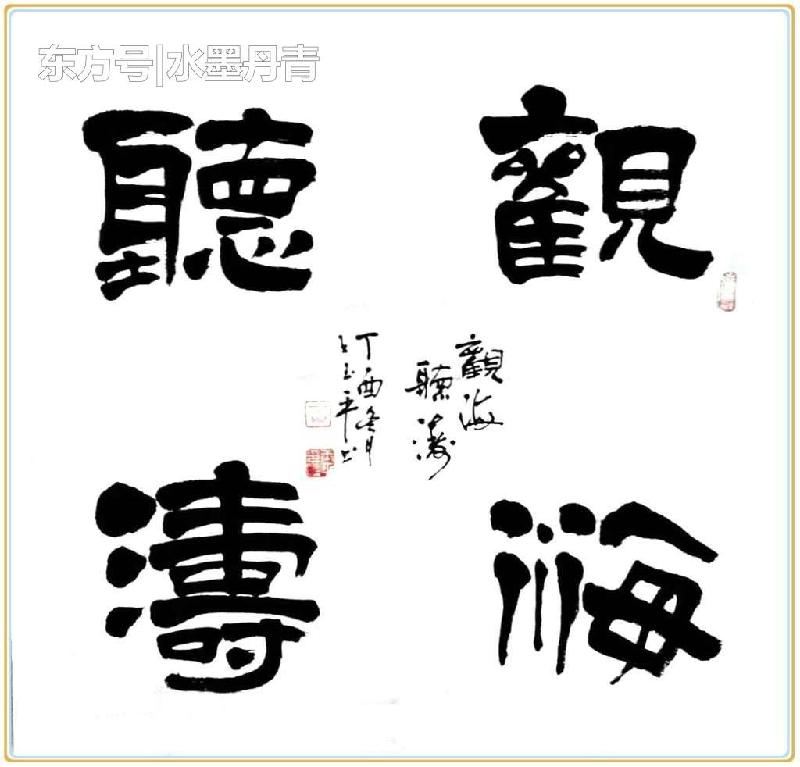 东方号|水墨丹青
觀海
聽濤
觀海
聽濤
丁酉冬月